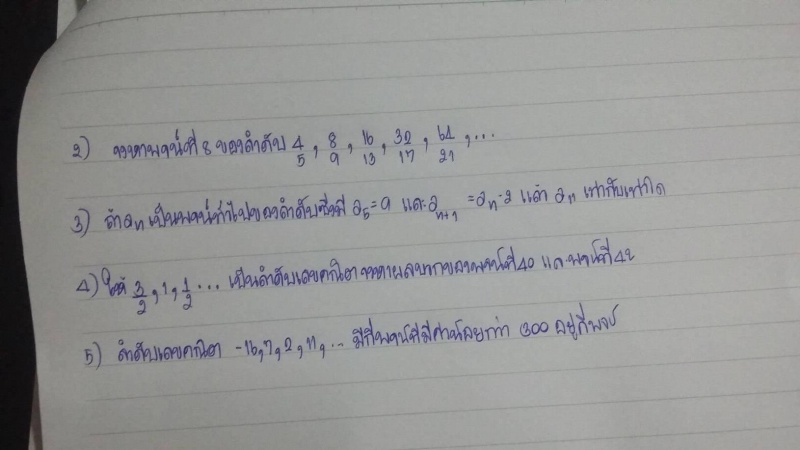 2) จงหาพจน์ที่ 8 ของลำดับ 4/5, 8/9, 16/13, 32/17, 64/21, ...
3) ถ้า an เป็นพจน์ทั่วไปของลำดับซึ่งมี a5=9 และ an+1 =an-2 แล้ว an เท่ากับเท่าใด
4) ให้ 3/2, 1, 1/2 ... เป็นลำดับเลขคณิต จงหาผลบวกของพจน์ที่ 40 และพจน์ที่ 42
5) ลำดับเลขคณิต -16, 7, 2, 11, ... มีกี่พจน์ที่มีค่าน้อยกว่า 300 อยู่กี่พจน์